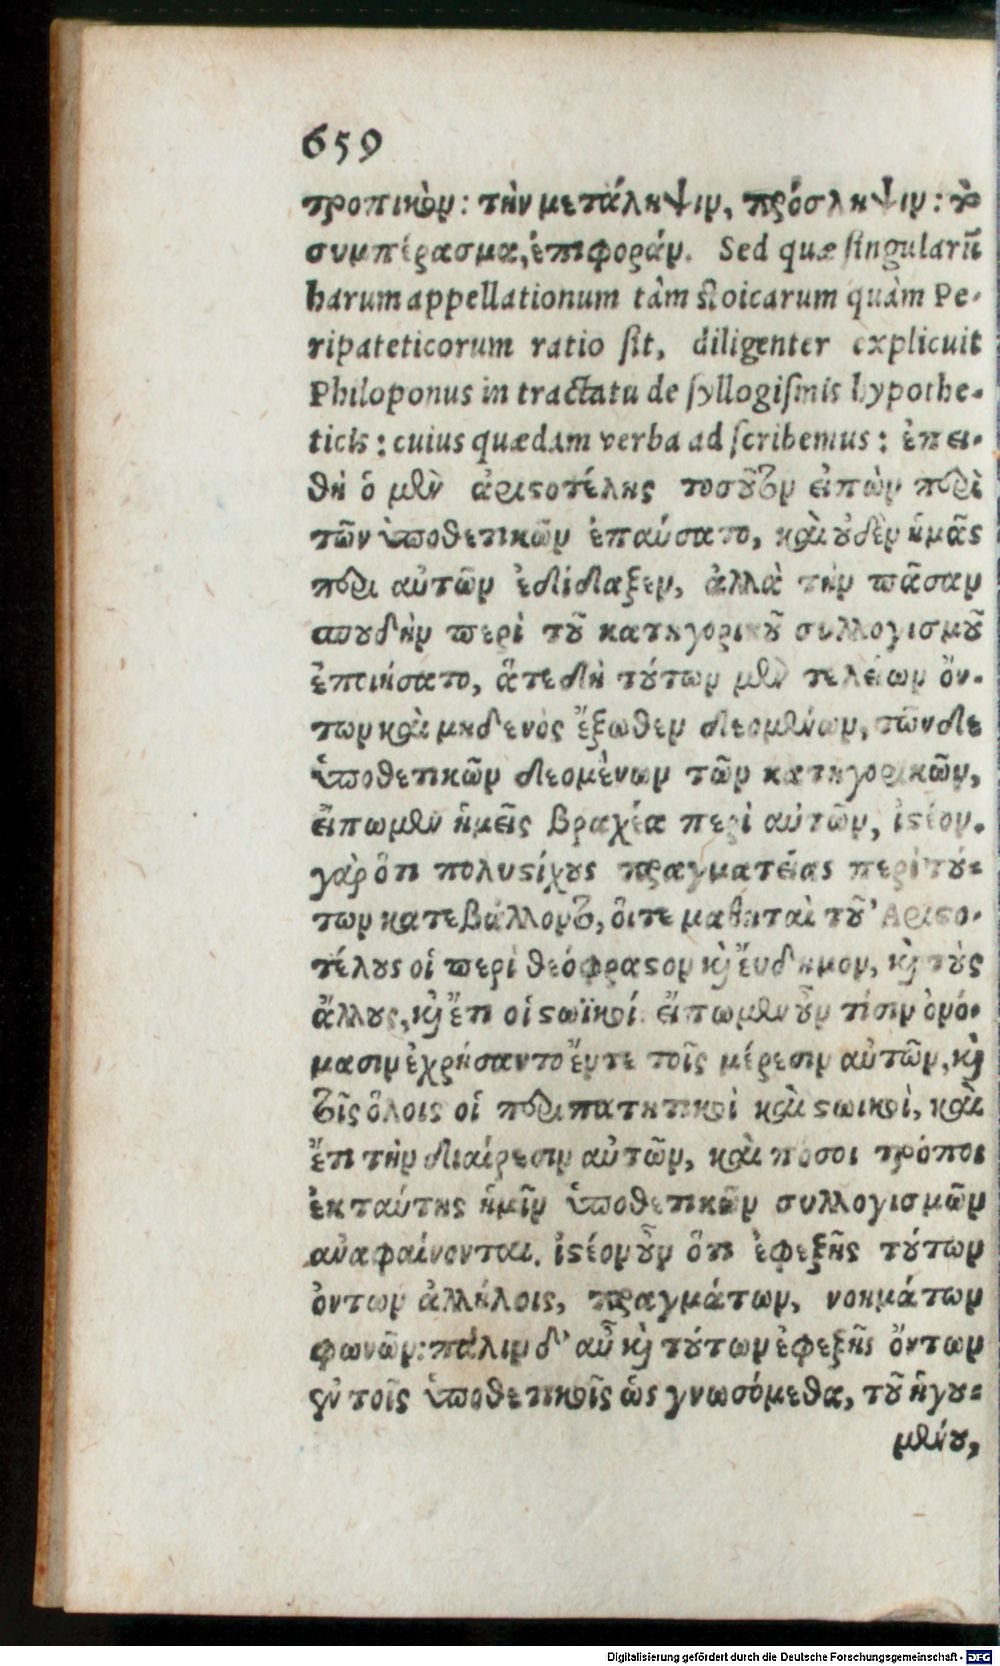 659
τροπικὸν: τὴν μετάληψιν, πρόσληψιν: τὸ
συμπέρασμα, ἐπιφοράν. Sed quæ singularũ
harum appellationum tàm stoicarum quàm Pe-
ripateticorum ratio sit, diligenter explicuit
Philoponus in tractatu de syllogismis hypothe-
ticis: cuius quædam verba ad scribemus: ἐπει-
δὴ ὁ μὲν ἀριστοτέλης τοσοῦτον εἰπὼν περὶ
τῶν ὑποθετικῶν ἐπαύσατο, καὶ οὐδὲν ἡμᾶς
περι αὐτῶν ἐδίδαξεν, ἀλλὰ τὴν πᾶσαν
σπουδὴν περὶ τοῦ κατηγορικοῦ συλλογισμοῦ
ἐποιήσατο, ἅτε δὴ τούτων μὲν τελείων ὄν-
των καὶ μηδενὸς ἔξωθεν δεομένων, τῶν δε
ὑποθετικῶν δεομένων τῶν κατηγορικῶν,
εἴπωμεν ἡμεῖς βραχέα περὶ αὐτῶν, ἰστέον.
γὰρ ὅτι πολυστίχους πραγματείας περὶ τού-
των κατεβάλλοντο, ὅιτε μαθηταὶ τοῦ Ἀριστο-
τέλους οἱ περὶ θεόφραστον καὶ ἔυδημον, καὶ τοὺς
ἄλλους, καὶ ἔτι οἱ στωϊκοί. εἴπωμεν οὖν τίσιν ὀνό-
μασιν ἐχρήσαντο ἔν τε τοῖς μέρεσιν αὐτῶν, καὶ
τοῖς ὅλοις οἱ περιπατητικοὶ καὶ στωικοὶ, καὶ
ἔτι τὴν διαίρεσιν αὐτῶν, καὶ πόσοι τρόποι
ἐκ ταύτης ἡμῖν ὑποθετικῶν συλλογισμῶν
αναφαίνονται. ἰστέον οὖν ὅτι ἐφεξῆς τούτων
ὄντων ἀλλήλοις, πραγμάτων, νοημάτων
φωνῶν: πάλιν δ' αὖ καὶ τούτων ἐφεξῆς ὄντων
ἐν τοῖς ὑποθετικοῖς ὡς γνωσόμεθα, τοῦ ἡγου-
μένου,
Digitalisierung gefördert durch die Deutsche Forschungsgemeinschaft - DFG